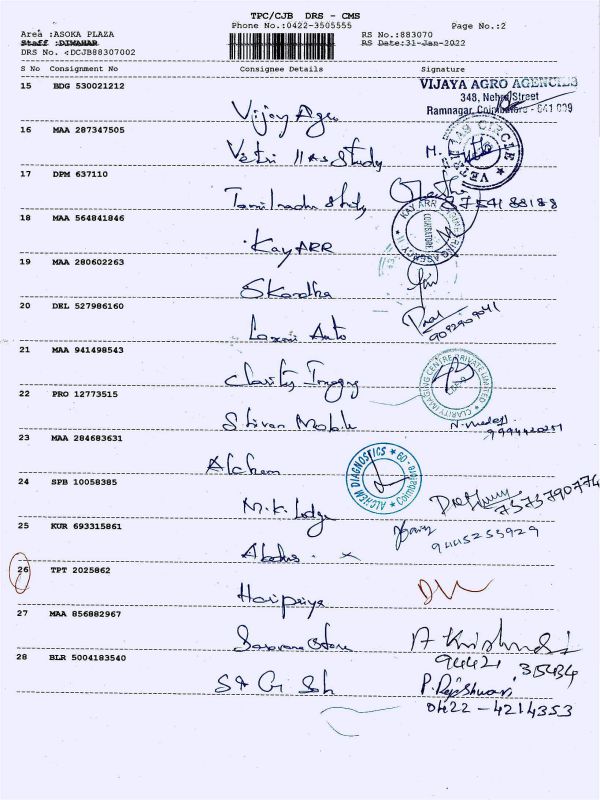 TPC/CJB DRS - CMS
Phone No.:0422-3505555 Page No.:2
Area :ASOKA PLAZA RS No.:883070
Staff :DIWAHAR RS Date:31-Jan-2022
DRS No. :DCJB88307002
S No Consignment No Consignee Details Signature
15 BDG 530021212 VIJAYA AGRO AGENCIES
348, Nehru Street
Ramnagar, Coimbatore - 641 009
Vijay Agro
16 MAA 287347505
Vetri IAS Study M.
VETRII IAS STUDY CIRCLE
17 DPM 637110
Tamilnadu 8754188188
18 MAA 564841846
Kay ARR
KAY ARR AGENCY COIMBATORE
19 MAA 280602263
Skandha
20 DEL 527986160
Laxmi Auto
21 MAA 941498543
Clarity Imaging
CLARITY IMAGING CENTRE PRIVATE LIMITED
22 PRO 12773515
Shivan Mobile
23 MAA 284683631
Alchem
ALCHEM DIAGNOSTICS Coimbatore - 09
24 SPB 10058385
M.K. Lodge 7373790774
25 KUR 693315861 9445253929
26 TPT 2025862
Haripriya
27 MAA 856882967
Saravana Store A Krishna
94421 315434
28 BLR 5004183540
S & G P. Rajeshwari
0422-4214353